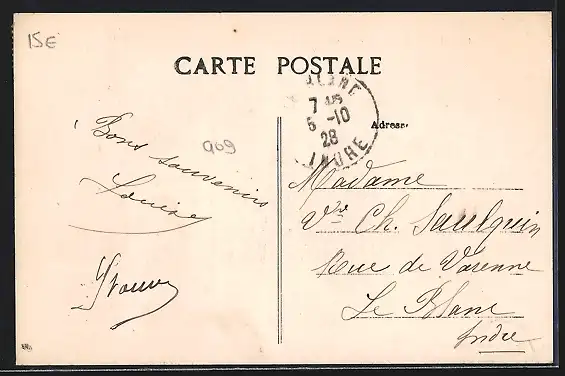 15E
CARTE POSTALE
LE BLANC
7 45
5 -10
28
INDRE
Adresse
909
Bons souvenirs
Louise
Yvonne
Madame
Vve Ch. Saulquin
Rue de Varenne
Le Blanc
Indre